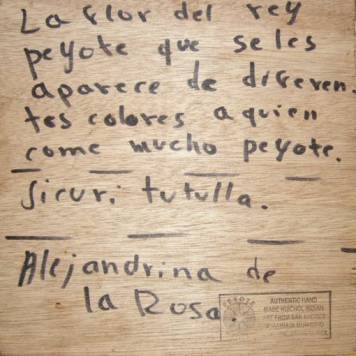 La flor del rey
peyote que se les
aparece de diferen.
tes colores a quien
come mucho peyote.
Sicuri tutulla.
Alejandrina de
la Rosa.
AUTHENTIC HAND
MADE HUICHOL INDIAN
ART FROM SAN ANDRES